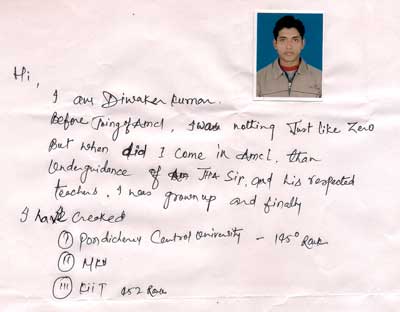 Hi,
I am Diwaker Kumar.
Before Joing of Amcl, I was nothing Just like Zero
But when did I come in Amcl, than
Underguidance of JHA Sir, and his respected
teachers, I was grown up and finally
I have Creaked
(I) Pondicherry Central University - 145° Rank
(II) MKU
(III) KiiT 452 Rank